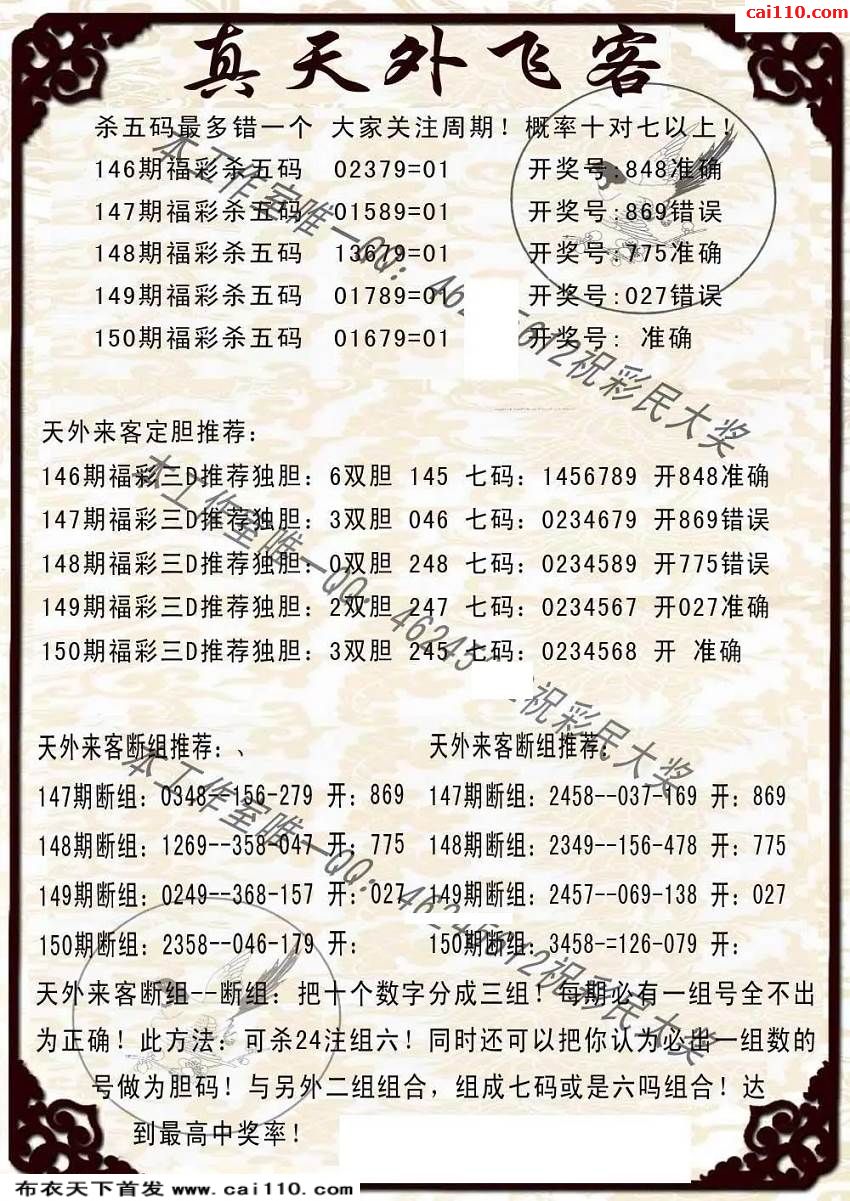 cai110.com
真天外飞客
杀五码最多错一个 大家关注周期！概率十对七以上！
146期福彩杀五码 02379=01 开奖号:848准确
147期福彩杀五码 01589=01 开奖号:869错误
148期福彩杀五码 13679=01 开奖号:775准确
149期福彩杀五码 01789=01 开奖号:027错误
150期福彩杀五码 01679=01 开奖号: 准确
天外来客定胆推荐：
146期福彩三D推荐独胆：6双胆 145 七码：1456789 开848准确
147期福彩三D推荐独胆：3双胆 046 七码：0234679 开869错误
148期福彩三D推荐独胆：0双胆 248 七码：0234589 开775错误
149期福彩三D推荐独胆：2双胆 247 七码：0234567 开027准确
150期福彩三D推荐独胆：3双胆 245 七码：0234568 开 准确
天外来客断组推荐：、
147期断组：0348--156-279 开：869
148期断组：1269--358-047 开：775
149期断组：0249--368-157 开：027
150期断组：2358--046-179 开：
天外来客断组推荐：
147期断组：2458--037-169 开：869
148期断组：2349--156-478 开：775
149期断组：2457--069-138 开：027
150期断组：3458-=126-079 开：
天外来客断组--断组：把十个数字分成三组！每期必有一组号全不出
为正确！此方法：可杀24注组六！同时还可以把你认为必出一组数的
号做为胆码！与另外二组组合，组成七码或是六吗组合！达
到最高中奖率！
本工作室唯一QQ：462 5612祝彩民大奖
本工作室唯一QQ：46245 2祝彩民大奖
本工作室唯一QQ：46245612祝彩民大奖
布衣天下首发 www.cai110.com